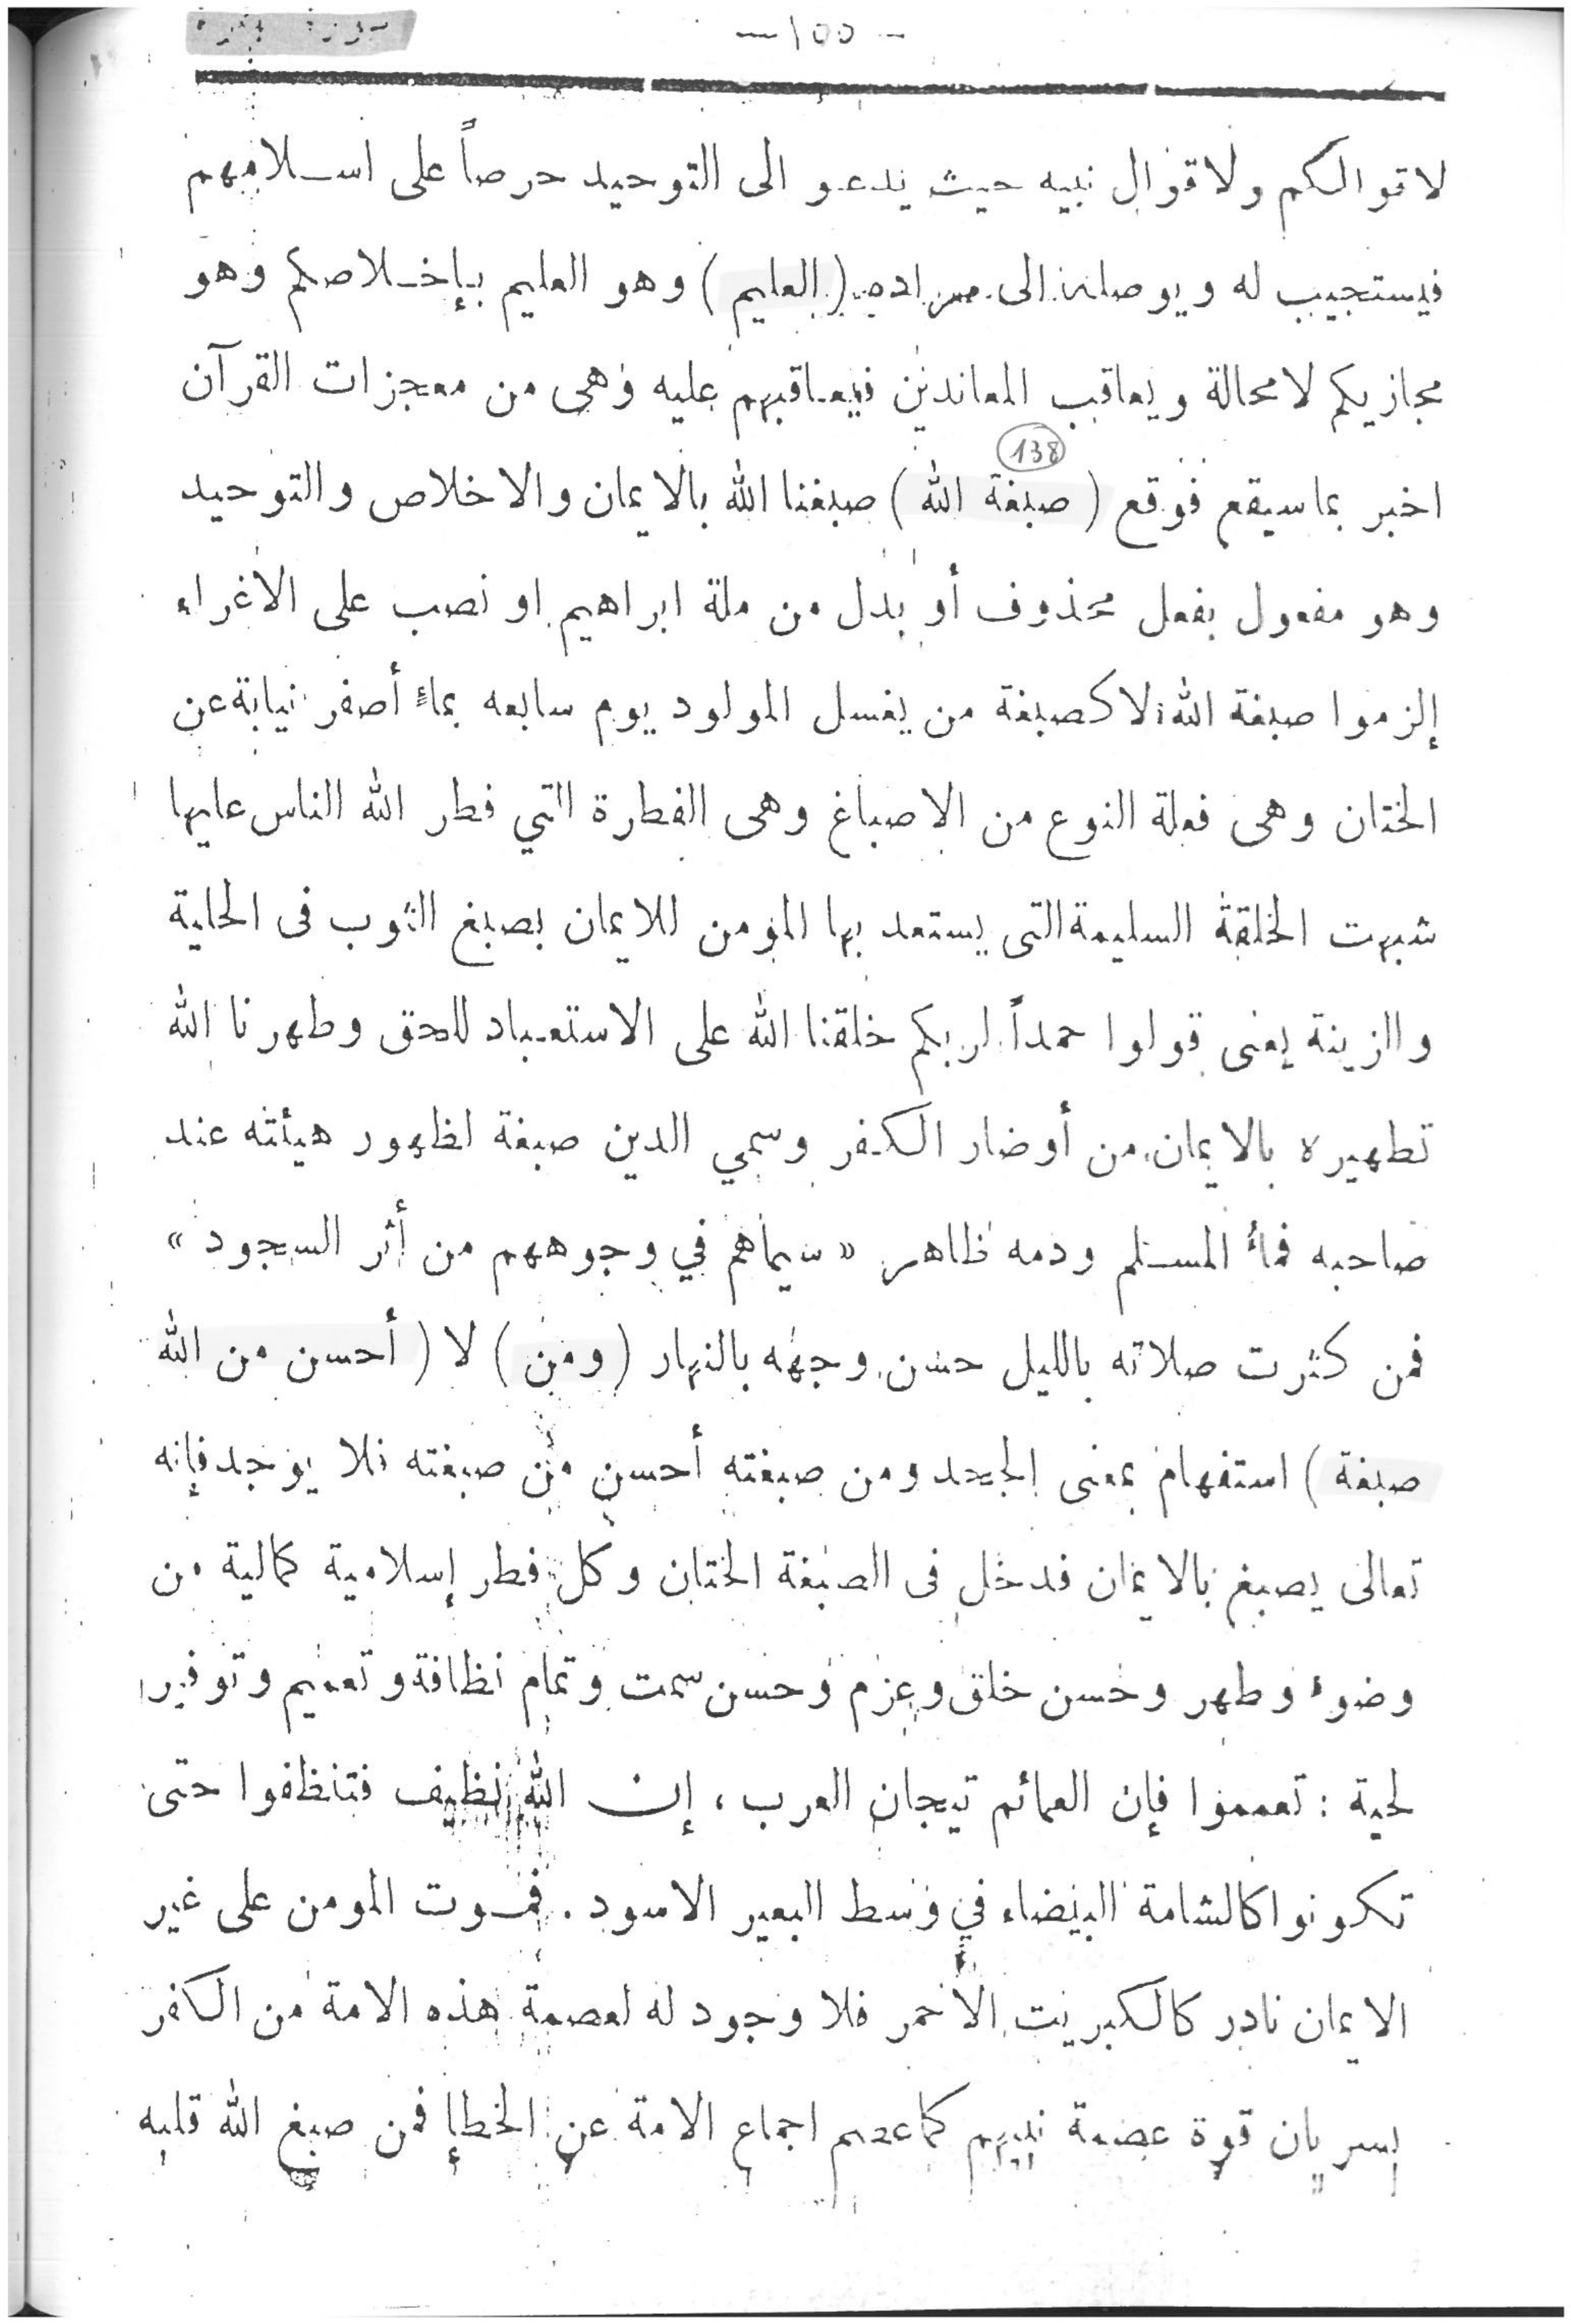 — ١٥٥ —
لاقوالكم ولاقوال نبيه حيث يدعو الى التوحيد حرصاً على اسلامهم
فيستجيب له ويوصله الى مراده (العليم) وهو العليم بإخلاصكم وهو
مجازيكم لامحالة ويعاقب المعاندين فيعاقبهم عليه وهى من معجزات القرآن
138
اخبر بماسيقع فوقع (صبغة الله) صبغنا الله بالايمان والاخلاص والتوحيد
وهو مفعول بفعل محذوف أو بدل من ملة ابراهيم او نصب على الاغراء
إلزموا صبغة الله لاكصبغة من يغسل المولود يوم سابعه بماء أصفر نيابة عن
الختان وهى فعلة النوع من الاصباغ وهى الفطرة التي فطر الله الناس عليها
شبهت الخلقة السليمة التى يستعد بها المؤمن للايمان بصبغ الثوب فى الحلية
والزينة يعنى قولوا حمداً لربكم خلقنا الله على الاستعباد للحق وطهرنا الله
تطهيره بالايمان من أوضار الكفر وسمي الدين صبغة لظهور هيئته عند
صاحبه فمأ المسلم ودمه ظاهر «سيماهم في وجوههم من أثر السجود»
فمن كثرت صلاته بالليل حسن وجهه بالنهار (ومن) لا (أحسن من الله
صبغة) استفهام بمعنى الجحد ومن صبغته أحسن من صبغته فلا يوجد فإنه
تعالى يصبغ بالايمان فدخل فى الصبغة الختان وكل فطر إسلامية كمالية من
وضوء وطهر وحسن خلق وعزم وحسن سمت وتمام نظافة وتعميم وتوفير
لحية : تعمموا فإن العمائم تيجان العرب ، إن الله نظيف فتنظفوا حتى
تكونوا كالشامة البيضاء في وسط البعير الاسود . فموت المومن على غير
الايمان نادر كالكبريت الاحمر فلا وجود له لعصمة هذه الامة من الكفر
بسريان قوة عصمة نبيهم كماعصم اجماع الامة عن الخطإ فمن صبغ الله قلبه